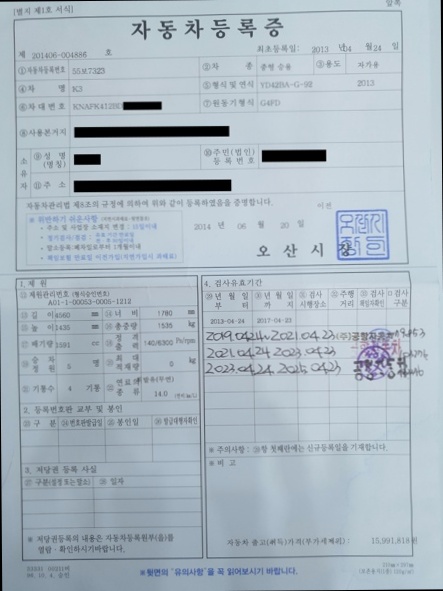 [별지 제1호 서식]
자동차등록증
제 201406-004886 호 최초등록일: 2013 년 04 월 24 일
①자동차등록번호 55보7323 ②차 종 중형 승용 ③용도 자가용
④차 명 K3 ⑤형식 및 연식 YD42BA-G-92 2013
⑥차대번호 KNAFK412BD ⑦원동기형식 G4FD
⑧사용본거지
소유자 ⑨성 명(명칭) ⑩주민(법인)등록번호
⑪주 소
자동차관리법 제8조의 규정에 의하여 위와 같이 등록하였음을 증명합니다. 이전
※ 위반하기 쉬운사항
2014 년 06 월 20 일
오 산 시 장
1. 제 원
⑫제원관리번호 (형식승인번호)
A01-1-00053-0005-1212
⑬길 이 4560 mm ⑭너 비 1780 mm
⑮높 이 1435 mm 총중량 1535 kg
배기량 1591 cc 정격출력 140/6300 Ps/rpm
승차정원 5 명 최대적재량 0 kg
기통수 4 기통 연료의종류 휘발유(무연) 14.0
2. 등록번호판 교부 및 봉인
구 분 번호판발급일 봉인일
3. 저당권 등록 사실
구분(설정 또는 말소) 일자
※ 저당권등록의 내용은 자동차등록원부(을)를
열람·확인하시기바랍니다.
4. 검사유효기간
년 월 일 부 터 년 월 일 까 지 검 사 시행장소 주행거리 검 사 책임자확인 검사구분
2013-04-24 2017-04-23
2019.04.24 2021.04.23
2021.04.24 2023.04.23
2023.04.24 2025.04.23
※ 주의사항: 항 첫째란에는 신규등록일을 기재합니다.
※ 비 고
자동차 출고(취득)가격(부가세제외): 15,991,818 원
※뒷면의 '유의사항'을 꼭 읽어보시기 바랍니다.